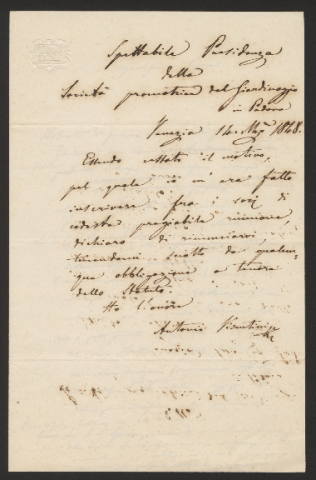 Spettabile Presidenza
della
Società promotrice del Giardinaggio
in Padova
Venezia 14 Mag. 1848.
Essendo cessato il motivo,
pel quale io m'era fatto
inscrivere fra i socj di
codesta pregiabile riunione,
dichiaro di rinunciarvi,
tenendomi sciolto da qualun-
que obbligazione a tenore
dello Statuto.
Ho l'onore
Antonio